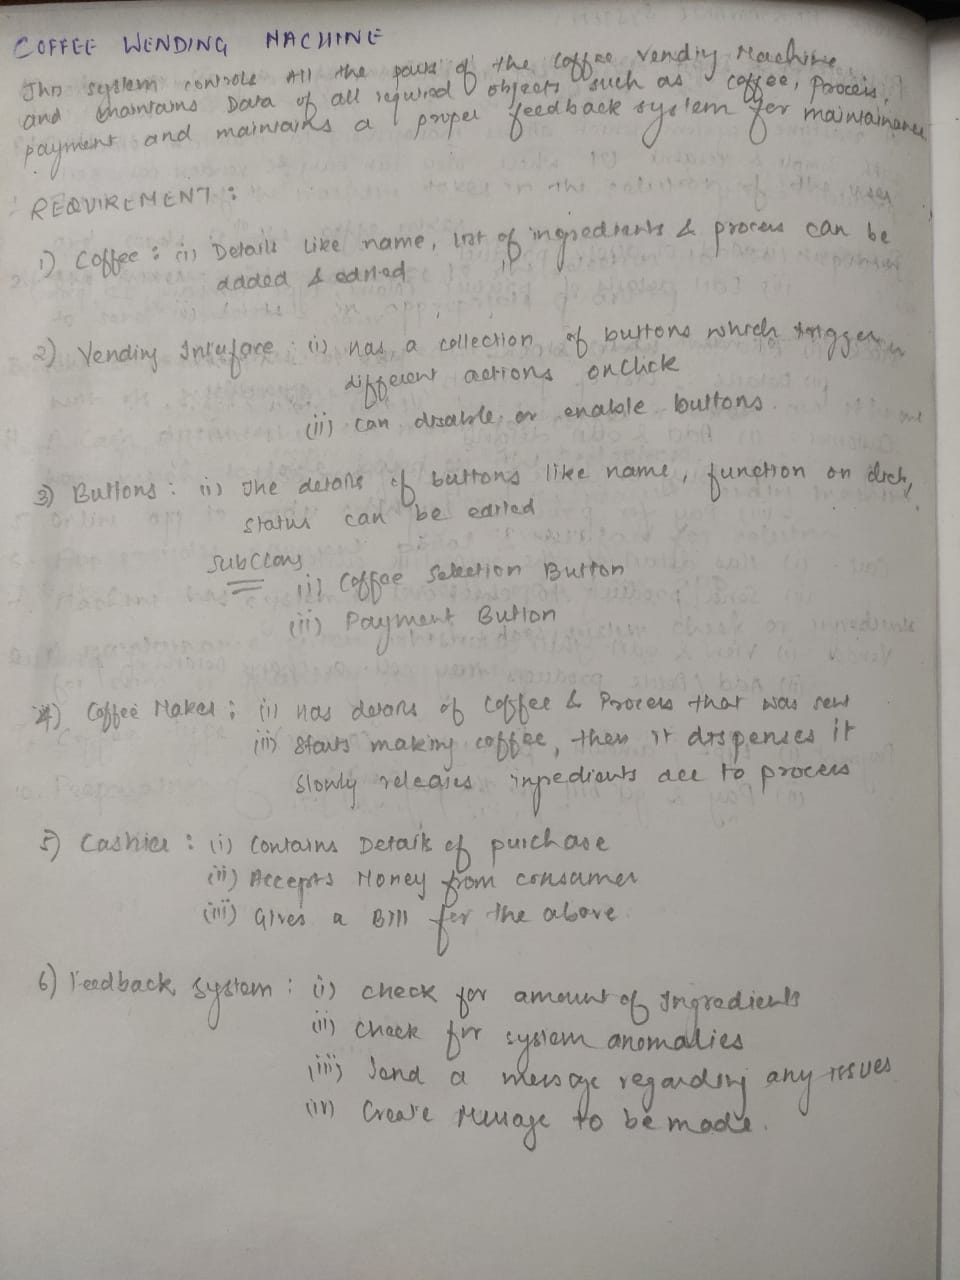 COFFEE WENDING MACHINE
This system controls All the parts of the Coffee Vending Machine
and maintains Data of all required objects such as coffee, Process,
payment and maintains a proper feedback system for maintainance
REQUIREMENT :
1) Coffee : (i) Details like name, list of ingredients & process can be
added & edited
2) Vending Interface : (i) has a collection of buttons which trigger
different actions onclick
(ii) can disable or enable buttons.
3) Buttons : (i) The details of buttons like name, function on click,
status can be edited
SubClass
(i) Coffee Selection Button
(ii) Payment Button
4) Coffee Maker : (i) has details of Coffee & Process that was sent
(ii) Starts making coffee, then it dispenses it
Slowly releases ingredients acc to process
5) Cashier : (i) Contains Details of purchase
(ii) Accepts Money from consumer
(iii) Gives a Bill for the above.
6) Feedback System : (i) Check for amount of Ingredients
(ii) Check for system anomalies
(iii) Send a message regarding any issues
(iv) Create Message to be made.